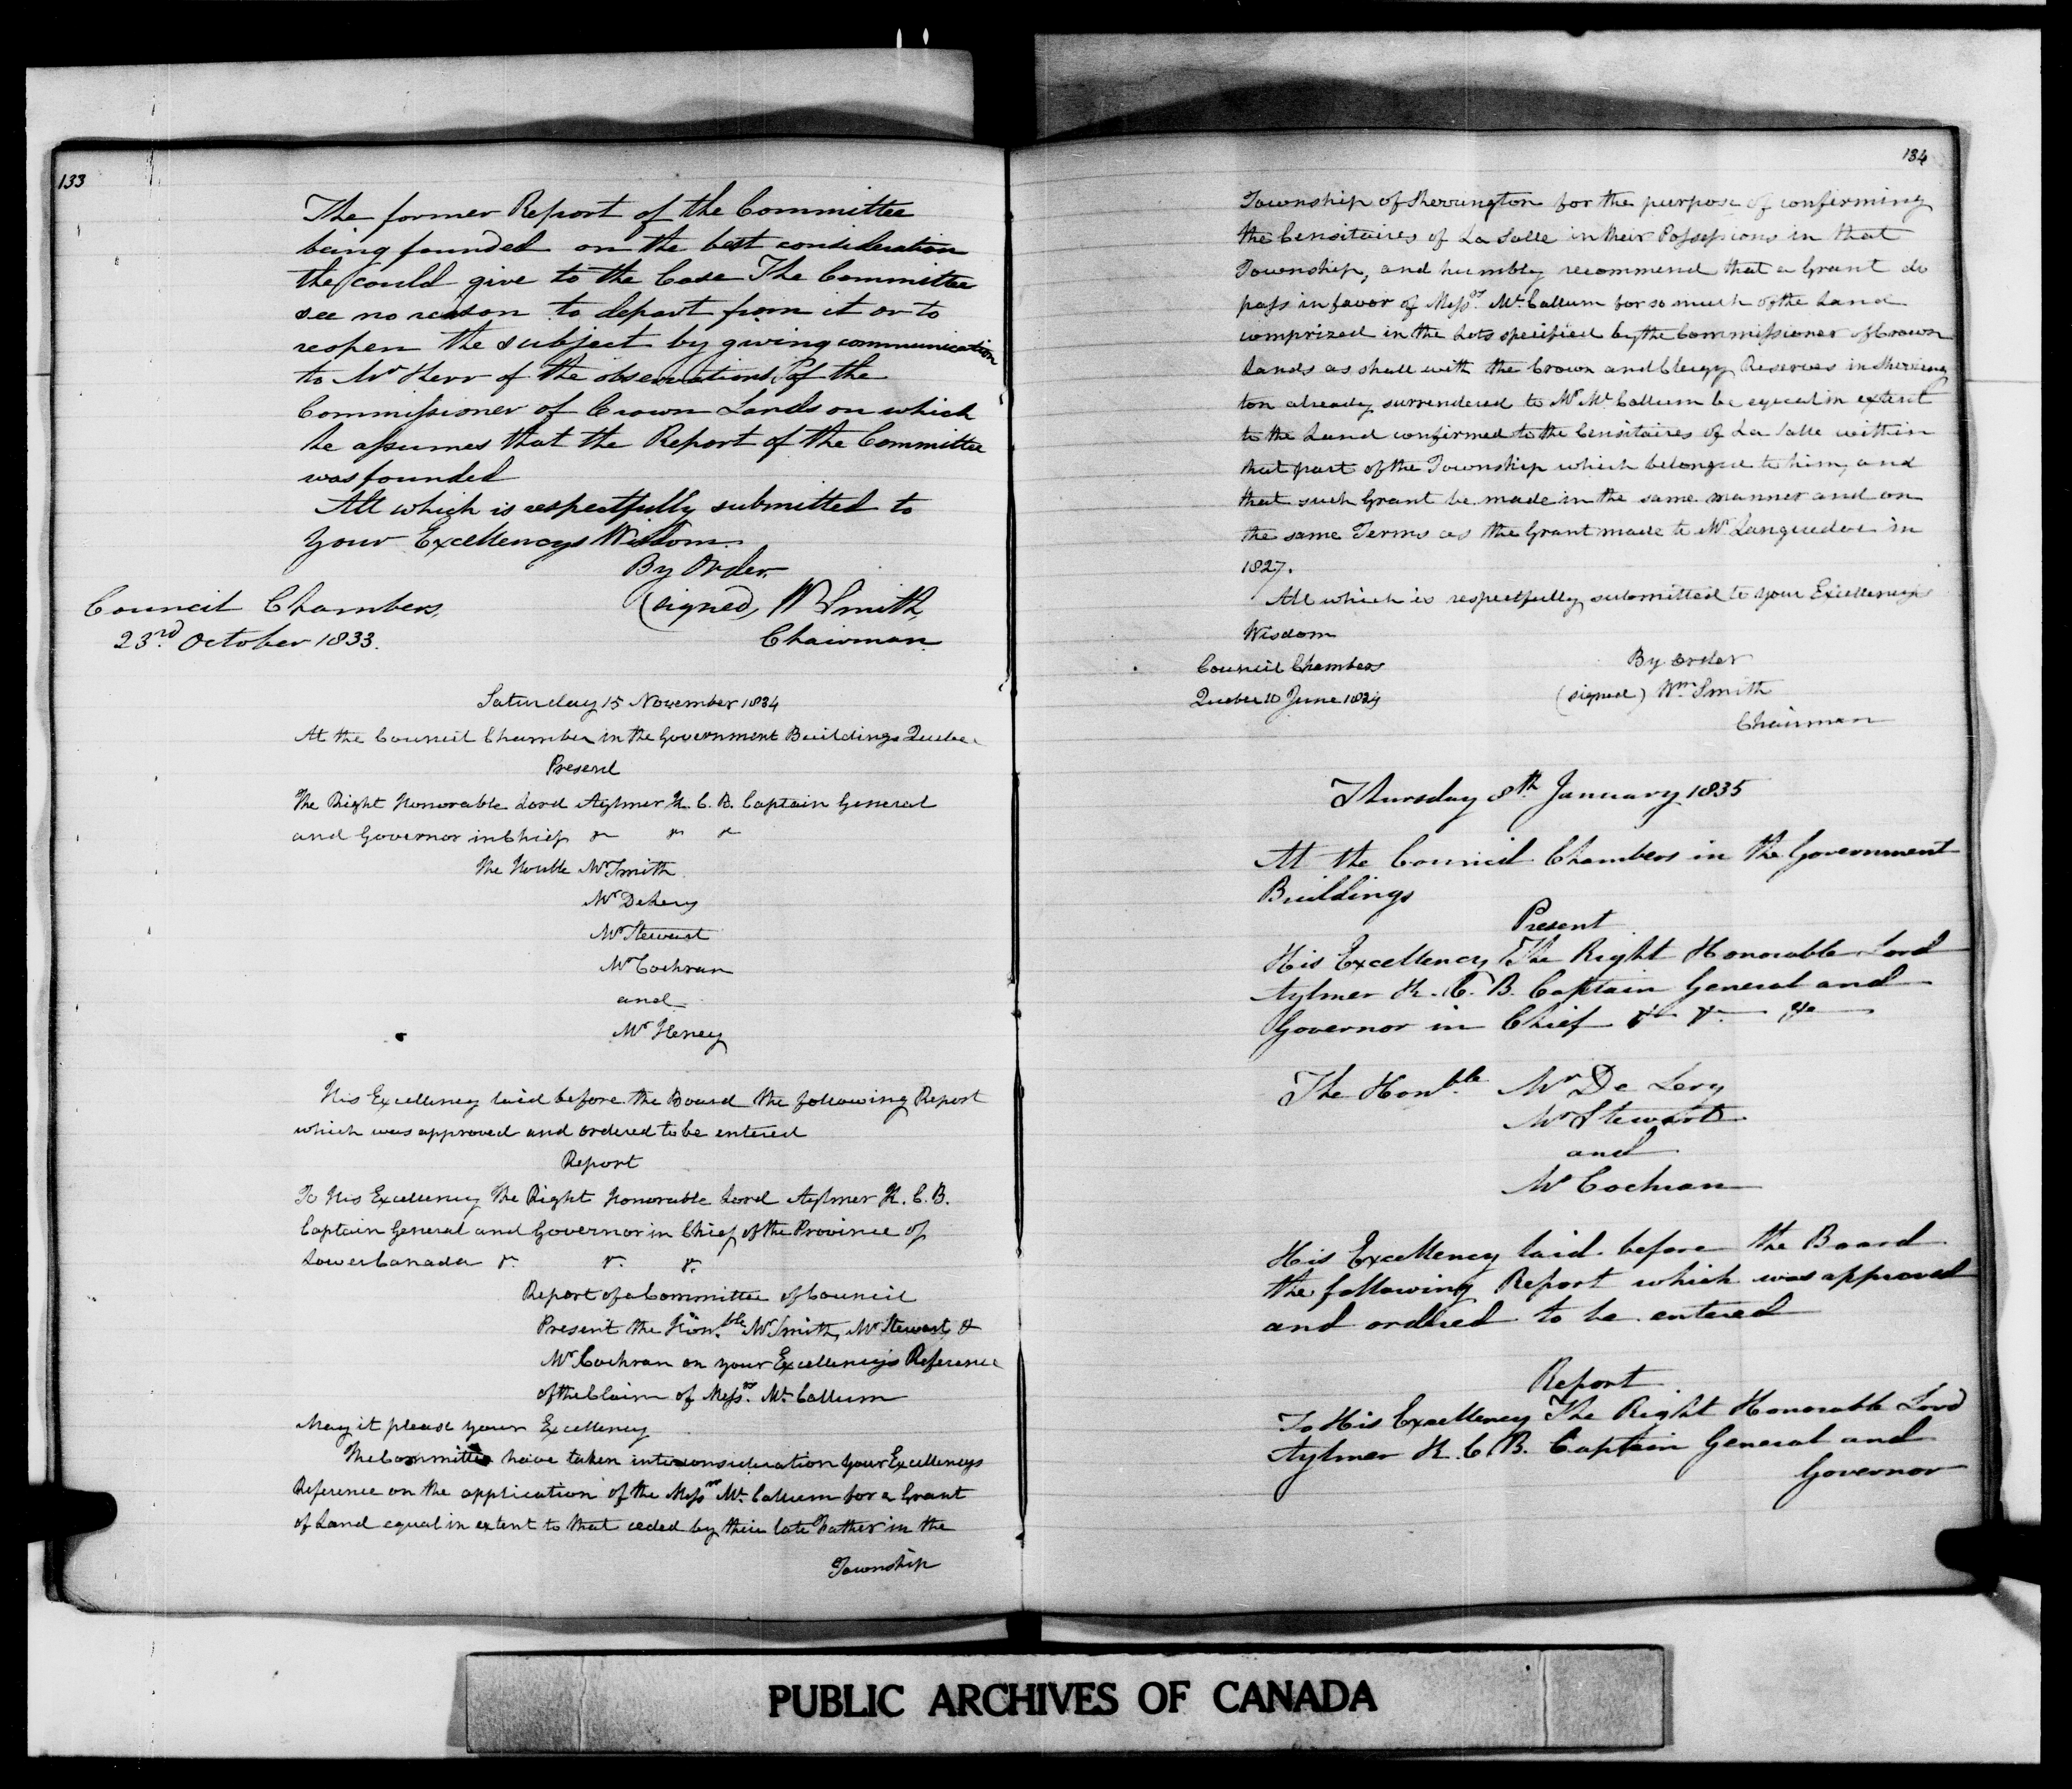 133
The former Report of the Committee
being founded on the best consideration
the could give to the Case The Committee
see no reason to depart from it or to
reopen the subject by giving communication
to Mr Kerr of the observations of the
Commissioner of Crown Lands on which
he assumes that the Report of the Committee
was founded
All which is respectfully submitted to
Your Excellencys Wisdom.
By Order.
Council Chambers, (signed) W Smith,
23rd October 1833. Chairman.
Saturday 15 November 1834
At the Council Chamber in the Government Buildings Quebec
Present
The Right Honorable Lord Aylmer K. C. B. Captain General
and Governor in Chief &c &c &c
The Honble Mr Smith
Mr DeLery
Mr Stewart
Mr Cochran
and
Mr Heney
His Excellency laid before the Board the following Report
which was approved and ordered to be entered
Report
To His Excellency The Right Honorable Lord Aylmer K. C. B.
Captain General and Governor in Chief of the Province of
Lower Canada &c. &c. &c.
Report of a Committee of Council
Present the Hon.ble Mr Smith, Mr Stewart, &
Mr Cochran on your Excellency's Reference
of the Claim of Messrs. Mc Callum
May it please your Excellency
The Committee have taken into consideration your Excellencys
Reference on the application of the Messrs Mc Callum for a Grant
of Land equal in extent to that ceded by their late Father in the
Township
134
Township of Sherrington for the purpose of confirming
the Censitaires of La Salle in their Possessions in that
Township, and humbly recommend that a Grant do
pass in favor of Messrs. Mc Callum for so much of the Land
comprized in the Lots specified by the Commissioner of Crown
Lands as shall with the Crown and Clergy Reserves in Sherring
ton already surrendered to Mr Mc Callum be equal in extent
to the Land confirmed to the Censitaires of La Salle within
that part of the Township which belonged to him, and
that such Grant be made in the same manner and on
the same Terms as the Grant made to Mr Languedoc in
1827.
All which is respectfully submitted to your Excellency's
Wisdom
Council Chambers By order
Quebec 10 June 1834 (signed) Wm Smith
Chairman
Thursday 8th January 1835
At the Council Chambers in the Government
Buildings
Present
His Excellency The Right Honorable Lord
Aylmer K. C. B. Captain General and
Governor in Chief &c &c &c
The Honble. Mr De Lery
Mr Stewart
and
Mr Cochran
His Excellency laid before the Board
the following Report which was approved
and ordered to be entered
Report
To His Excellency The Right Honorable Lord
Aylmer K. C. B. Captain General and
Governor
PUBLIC ARCHIVES OF CANADA